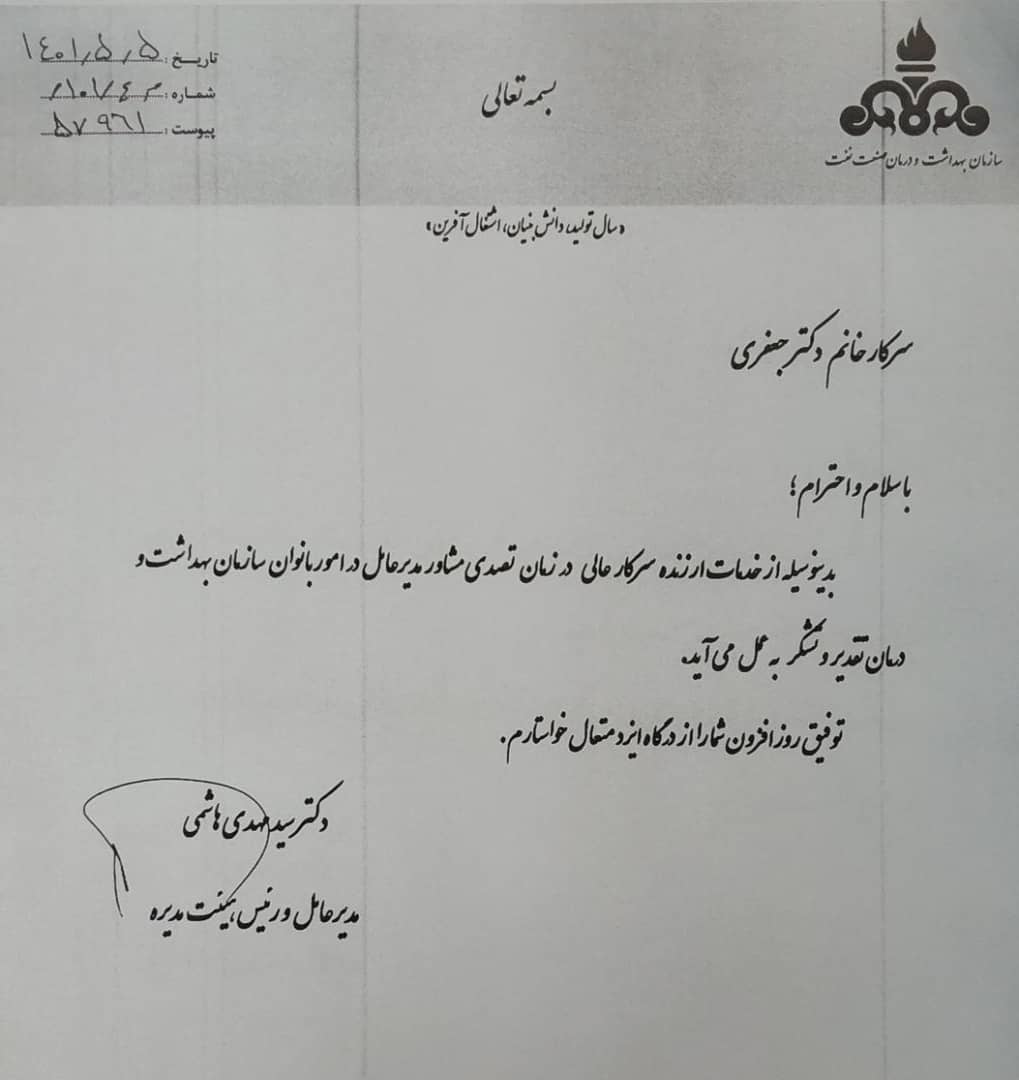 بسمه تعالی
سازمان بهداشت و درمان صنعت نفت
تاریخ: ۱۴۰۱٫۵٫۵
شماره:
پیوست: ۵۷۹۶۱
«سال تولید، دانش بنیان، اشتغال آفرین»
سرکار خانم دکتر جعفری
باسلام و احترام؛
بدینوسیله از خدمات ارزنده سرکار عالی در زمان تصدی مشاور مدیرعامل در امور بانوان سازمان بهداشت و
درمان تقدیر و تشکر به عمل می آید.
توفیق روز افزون شما را از درگاه ایزد متعال خواستارم.
دکتر سید مهدی هاشمی
مدیرعامل و رئیس هیئت مدیره